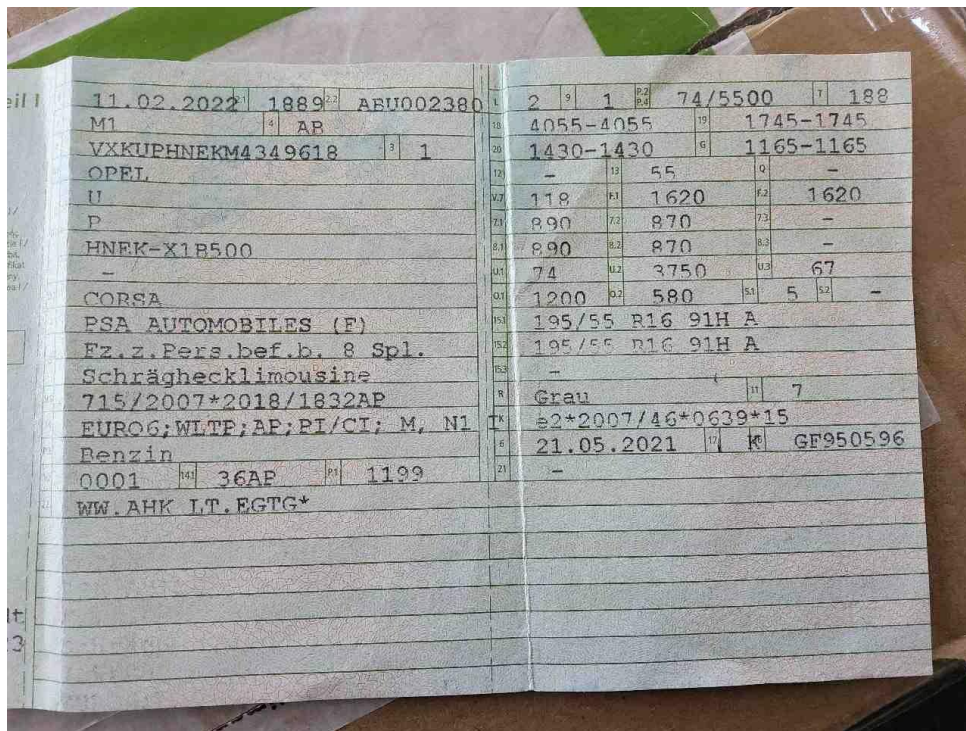 eil I
11.02.2022 2.1 1889 2.2 ABU002380
M1 4 AB
VXKUPHNEKM4349618 3 1
OPEL
U
P
HNEK-X1B500
–
CORSA
PSA AUTOMOBILES (F)
Fz.z.Pers.bef.b. 8 Spl.
Schräghecklimousine
715/2007*2018/1832AP
EURO6;WLTP;AP;PI/CI; M, N1 I
Benzin
0001 14.1 36AP P.1 1199
WW.AHK LT.EGTG*
L 2 9 1 P.2 P.4 74/5500 T 188
18 4055-4055 19 1745-1745
20 1430-1430 G 1165-1165
12 – 13 55 Q –
V.7 118 F.1 1620 F.2 1620
7.1 890 7.2 870 7.3 –
8.1 890 8.2 870 8.3 –
U.1 74 U.2 3750 U.3 67
O.1 1200 O.2 580 S.1 5 S.2 –
15.1 195/55 R16 91H A
15.2 195/55 R16 91H A
15.3 –
R Grau 11 7
K e2*2007/46*0639*15
6 21.05.2021 17 K 16 GF950596
21 –
lt
3